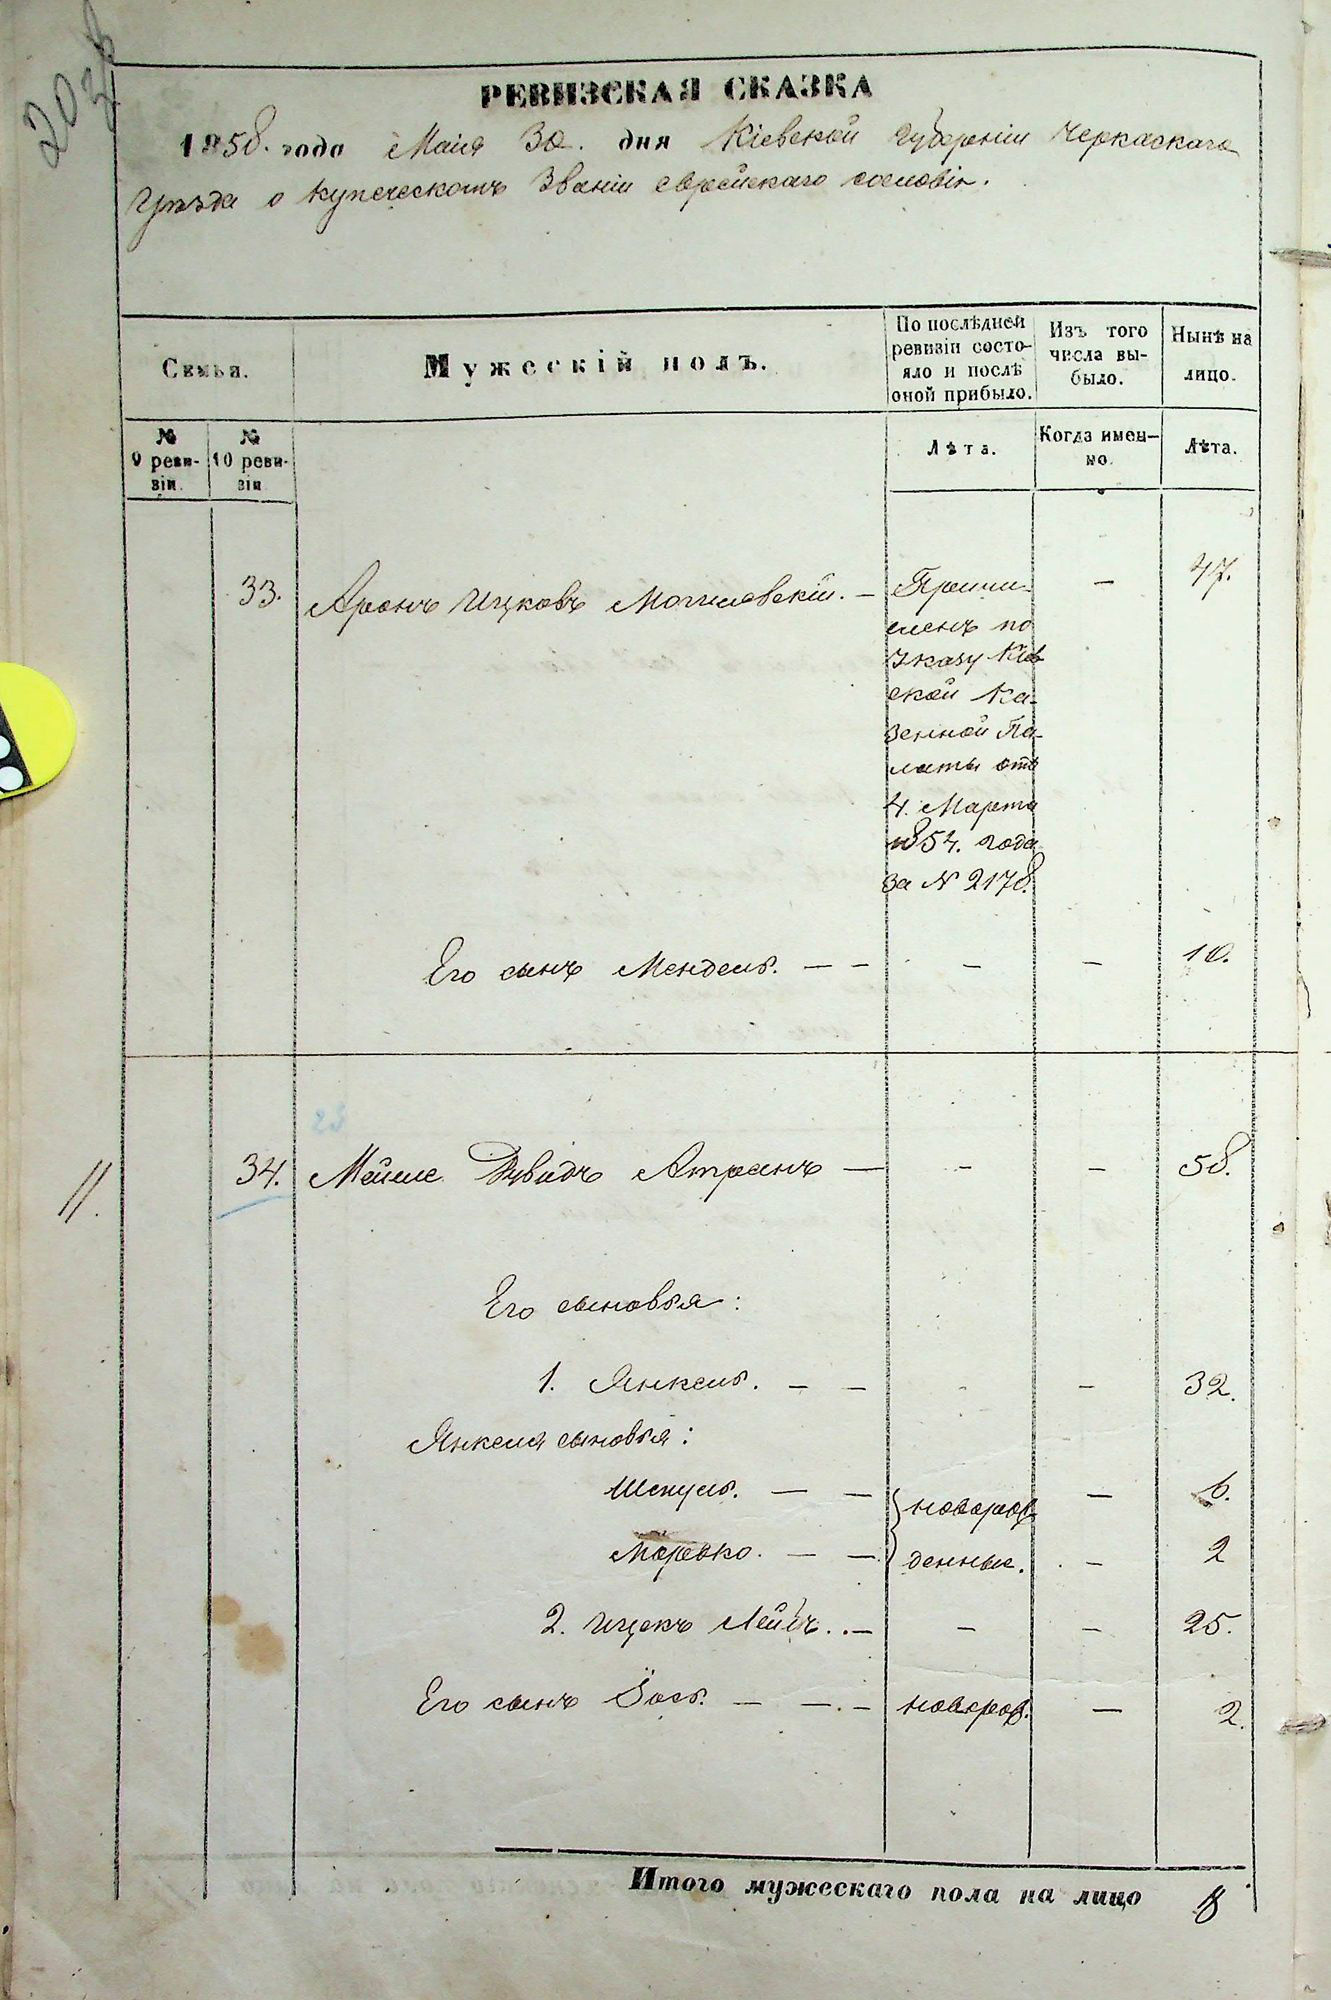 203
РЕВИЗСКАЯ СКАЗКА
1858. года Маія 30. дня Кіевской Губерніи Черкаскаго
Уѣзда о купеческомъ Званіи еврейскаго сословія.
Семья.
Мужескій полъ.
По послѣдней ревизіи состо-яло и послѣ оной прибыло.
Изъ того числа вы-было.
Нынѣ на лицо.
№ 9 реви-зіи.
№ 10 реви-зіи
Лѣта.
Когда имен-но.
Лѣта.
33. Аронъ Ицковъ Могилевскій. — Причи- — 47.
сленъ по
Указу Кіев
ской Ка-
зенной Па-
латы отъ
4. Марта
1854. года
за N 2178.
Его сынъ Мендель. — — — — 10.
23
11. 34. Мейше Дувидъ Атранъ — — — 58.
Его сыновья:
1. Янкель. — — - — 32.
Янкеля сыновья:
Шепуль. — — новорож- — 6.
Мордко. — — денные. — 2
2. Ицекъ Лейбъ. . — — — 25.
Его сынъ Іось. — — . — новорож. — 2.
Итого мужескаго пола на лицо 8